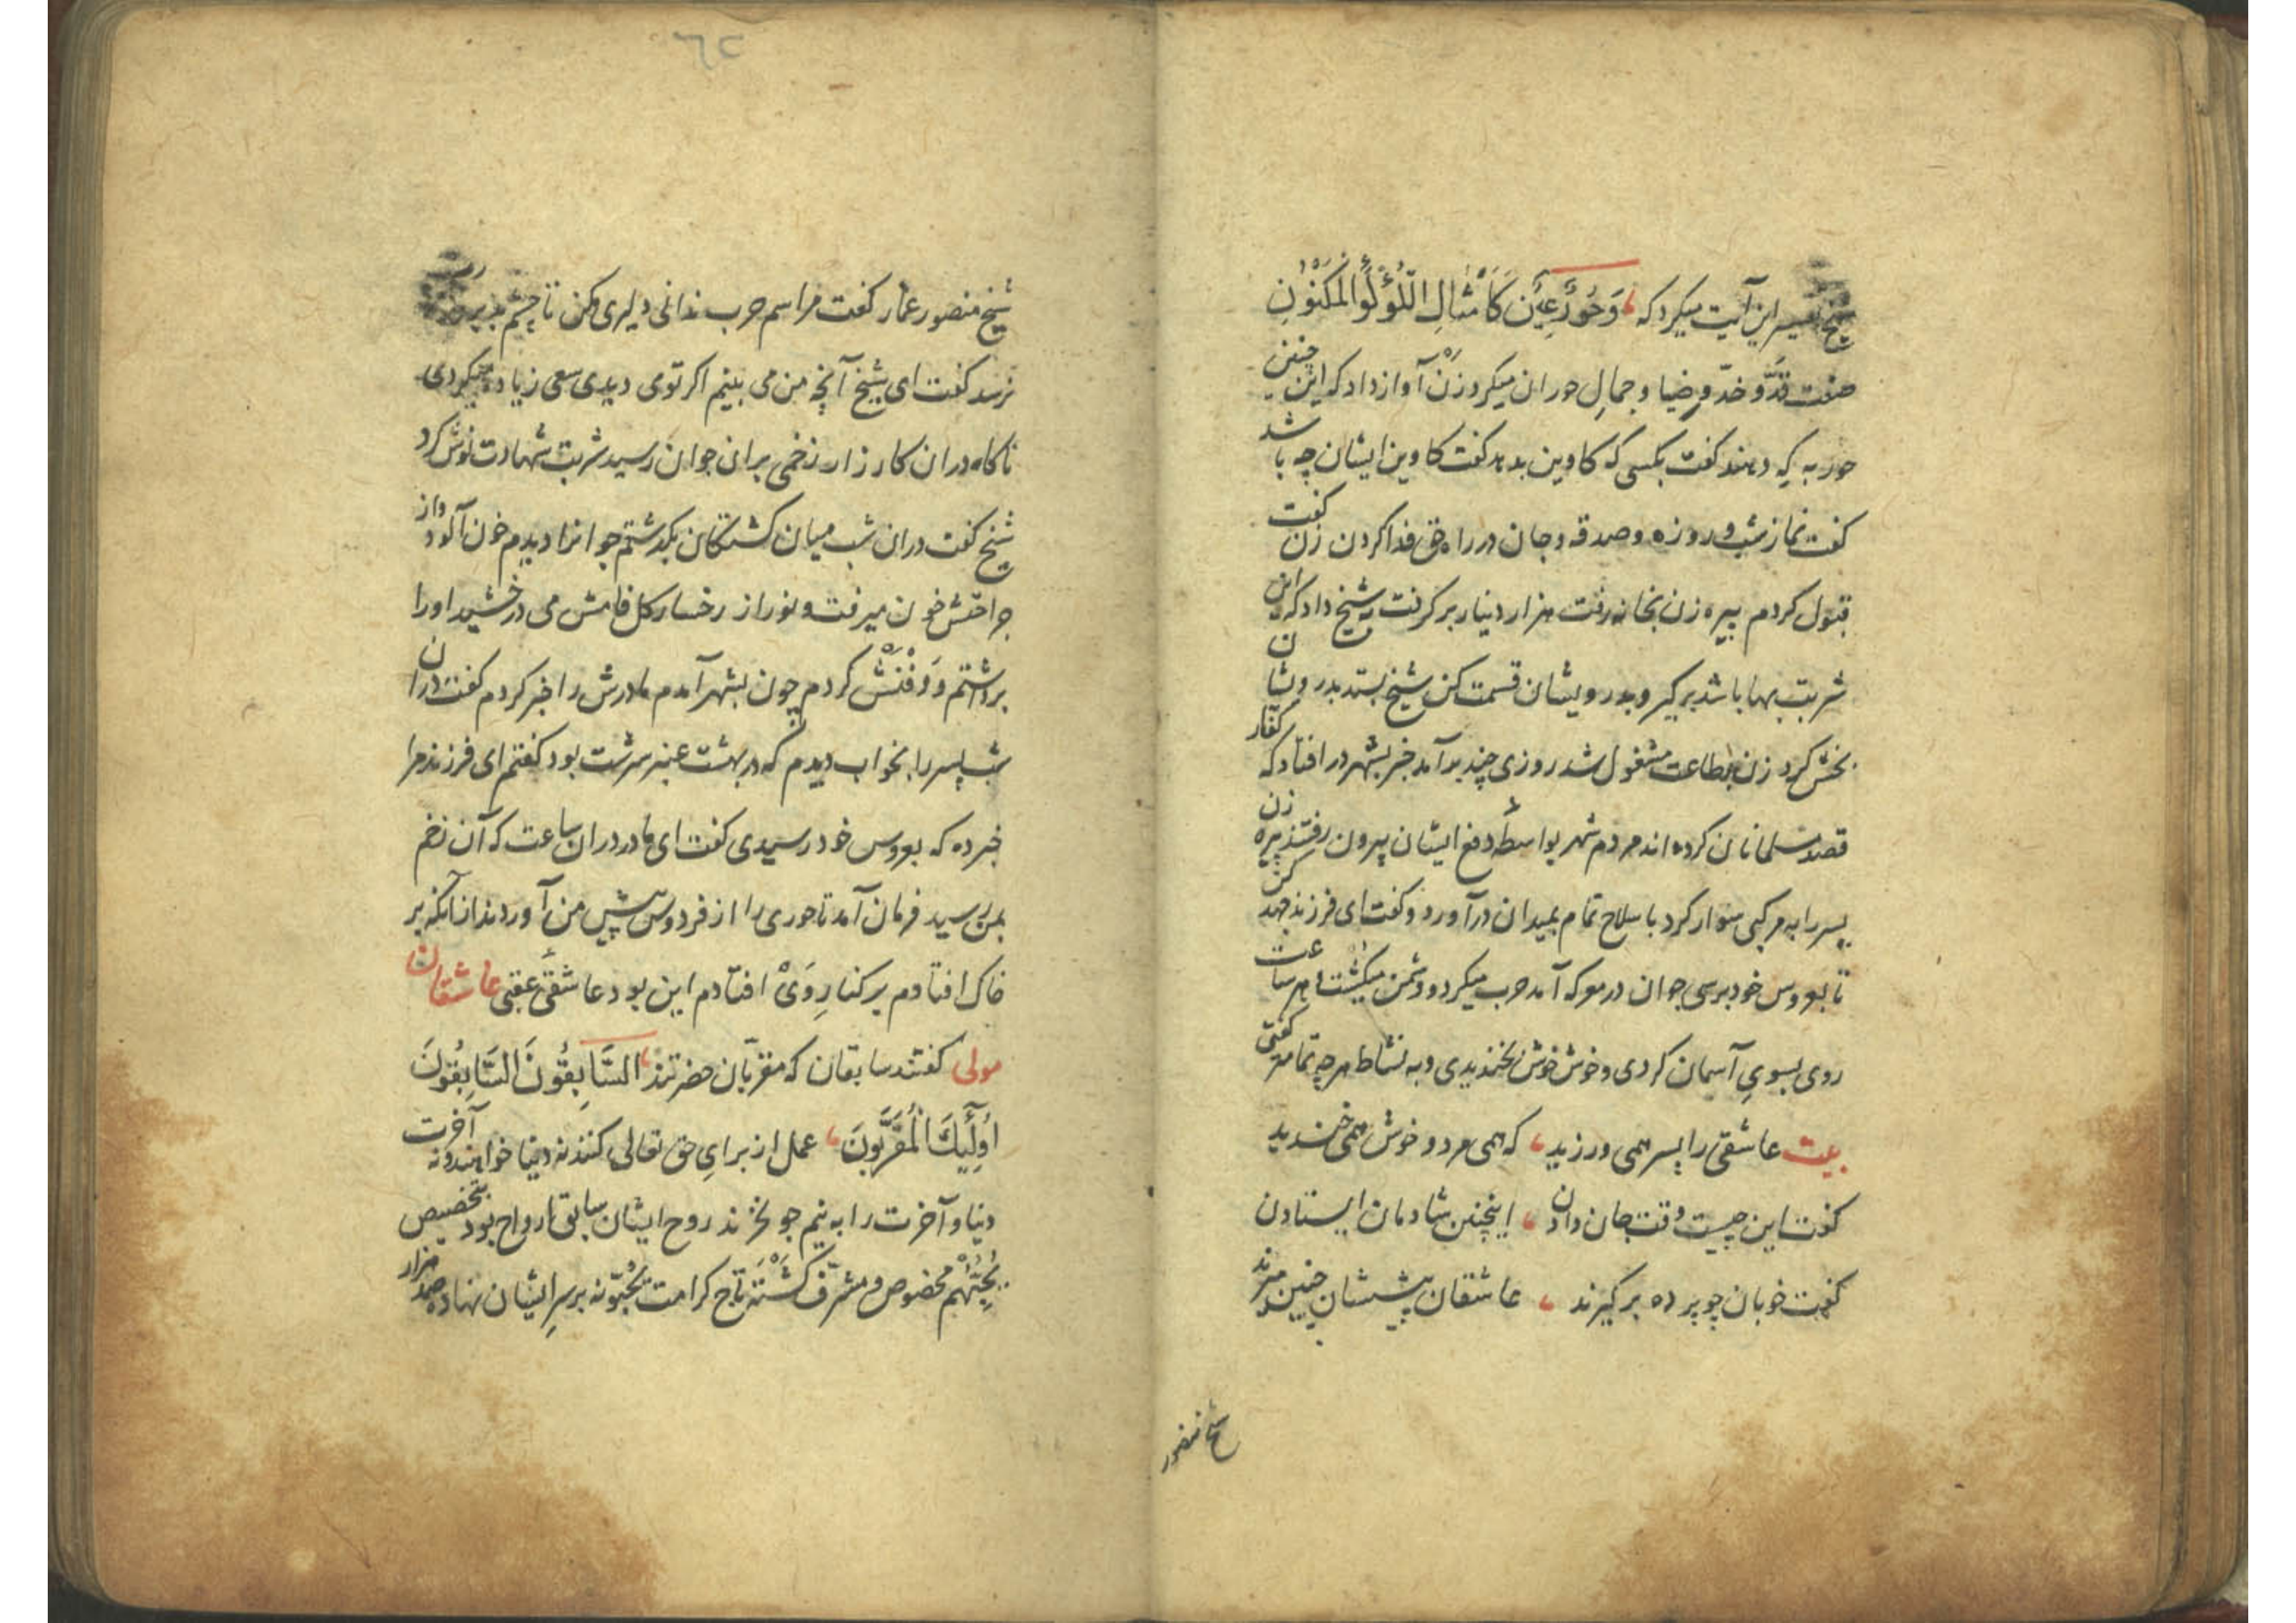 شیخ تفسیر این آیت میکرد که وَحُورٌ عِینٌ کَأَمْثَالِ اللُّؤْلُؤِ الْمَکْنُونِ
صفت قدّ و خدّ و ضیا و جمالِ حوران میکرد زن آواز داد که این چنین
حور به که دهند کفت بکسی که کاوین بدهد کفت کاوین ایشان چه باشد
کفت نماز شب و روزه و صدقه و جان در راه حق فدا کردن زن کفت
قبول کردم پیره زن بخانه رفت هزار دینار بر کرفت به شیخ داد که این
شربت بها باشد بر کیر و بدرویشان قسمت کن شیخ بستد بدرویشان
بخش کرد زن بطاعت مشغول شد روزی چند بر آمد خبر بشهر در افتاد که کفار
قصد مسلمانان کرده اند مردم شهر بواسطهٔ دفع ایشان بیرون رفتند پیره زن
پسر را به مرکبی سوار کرد با سلاح تمام بمیدان در آورد و کفت ای فرزند جهد کن
تا بعروس خود برسی جوان در معرکه آمد حرب میکرد و دشمن میکشت هر ساعت
روی بسویِ آسمان کردی و خوش خوش بخندیدی و به نشاط هر چه تمامتر کفتی
بیت عاشقی را پسر همی ورزید که همی مرد و خوش همی خندید
کفت این چیست وقت جان دادن اینچنین شادمان ایستادن
کفت خوبان چو پرده بر کیرند عاشقان پیششان چنین میرند
شیخ منصور
شیخ منصور عمار کفت مراسم حرب ندانی دلیری مکن تا چشم بد
نرسد کفت ای شیخ آنچه من می بینم اکر توی دیدی سعی زیاده میکردی
ناکاه دران کارزار زخمی بران جوان رسید شربت شهادت نوش کرد
شیخ کفت دران شب میان کشتکان بکدشتم جوانرا دیدم خون آلود و از
جراحتش خون میرفت و نور از رخسار کل فامش می درخشید او را
برداشتم و دفنش کردم چون بشهر آمدم مادرش را خبر کردم کفت دران
شب پسر را بخواب دیدم که در بهشت عنبر سرشت بود کفتم ای فرزند مرا
خبر ده که بعروس خود رسیدی کفت ای مادر دران ساعت که آن زخم
بمن رسید فرمان آمد تا حوری را از فردوس پیش من آوردند از آنکه بر
خاک افتادم بر کنارِ وَیْ افتادم این بود عاشقیِ عقبی عاشقان
مولی کفتند سابقان که مقرّبان حضرتند السَّابِقُونَ السَّابِقُونَ
اُولٰئِکَ الْمُقَرَّبُونَ عمل از برایِ حق تعالی کنند نه دنیا خواهند و نه آخرت
دنیا و آخرت را به نیم جو نخرند روح ایشان سابق ارواح بود بتخصیص
یُحِبُّهُمْ مخصوص و مشرّف کَشْتَه تاج کرامت یُحِبُّونَه بر سرِ ایشان نهاده صد هزار